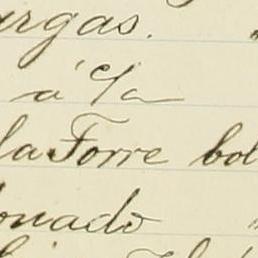 urgas. "
á c/a
la Torre bol
onado "